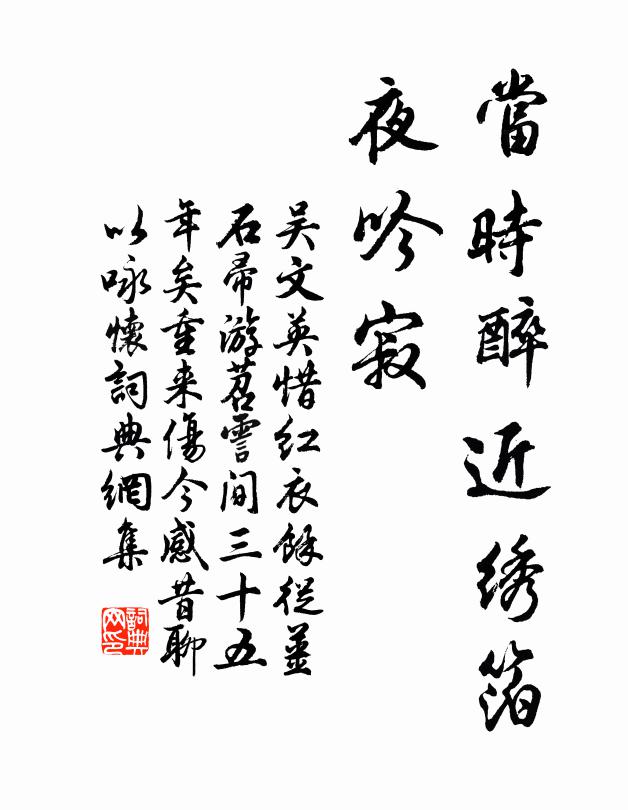 當時醉近綉箔
夜吟寂
吴文英惜红衣餘從薑
石帚游苕霅间三十五
年矣重来傷今感昔聊
以咏懷詞典網集
詞典
网印